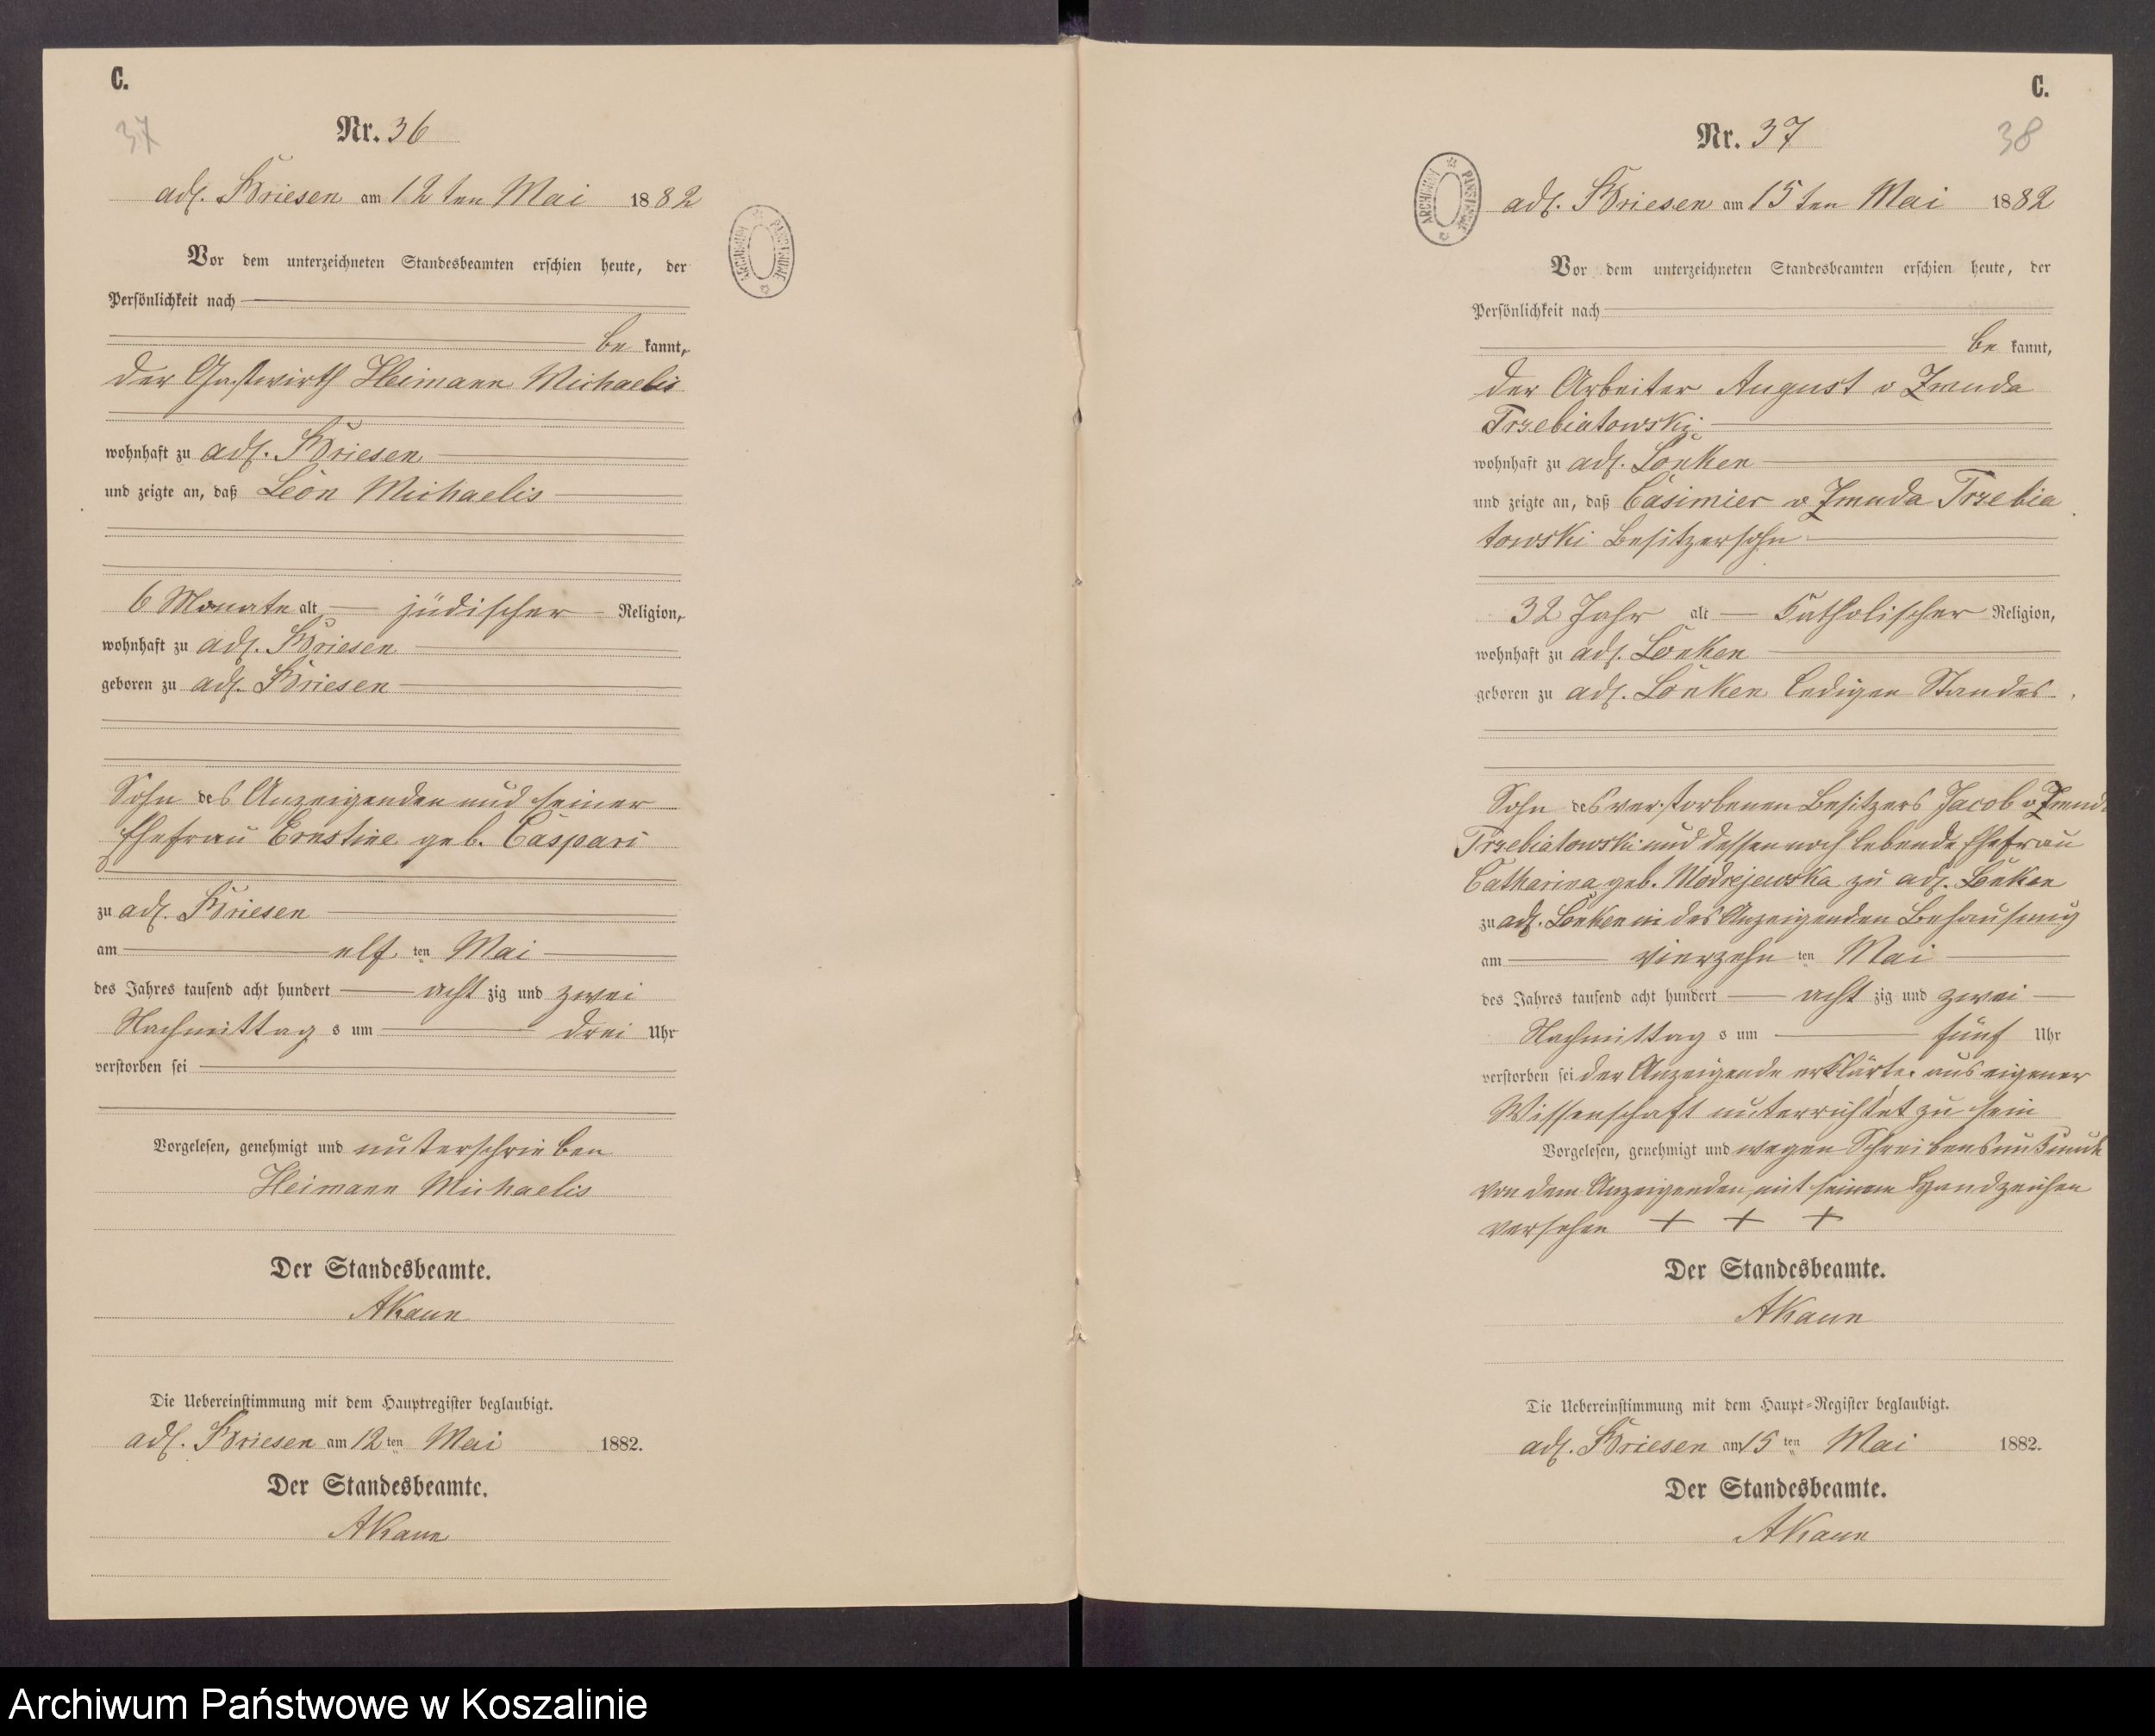 C.
37
Nr. 36
adl. Briesen am 12ten Mai 1882
Vor dem unterzeichneten Standesbeamten erschien heute, der
Persönlichkeit nach
be kannt,
der Gastwirth Heimann Michaelis
wohnhaft zu adl. Briesen
und zeigte an, daß Leon Michaelis
6 Monate alt, jüdischer Religion,
wohnhaft zu adl. Briesen
geboren zu adl. Briesen
Sohn des Anzeigenden und seiner
Ehefrau Ernstine geb. Caspari
zu adl. Briesen
am elf ten Mai
des Jahres tausend acht hundert acht zig und zwei
Nachmittag s um drei Uhr
verstorben sei
Vorgelesen, genehmigt und unterschrieben
Heimann Michaelis
Der Standesbeamte.
AKaun
Die Uebereinstimmung mit dem Hauptregister beglaubigt.
adl. Briesen am 12 ten Mai 1882.
Der Standesbeamte.
AKaun
ARCHIWUM PAŃSTWOWE
C.
38
Nr. 37
ARCHIWUM PAŃSTWOWE
adl. Briesen am 15ten Mai 1882
Vor dem unterzeichneten Standesbeamten erschien heute, der
Persönlichkeit nach
be kannt,
der Arbeiter August v Zmuda
Trzebiatowski
wohnhaft zu adl. Lonken
und zeigte an, daß Casimier v Zmuda Trzebia
towski Besitzersohn
32 Jahr alt Katholischer Religion,
wohnhaft zu adl. Lonken
geboren zu adl. Lonken ledigen Standes
Sohn des verstorbenen Besitzers Jacob v Zmuda
Trzebiatowski und dessen noch lebende Ehefrau
Catharina geb. Modrejewska zu adl. Lonken
zu adl. Lonken in des Anzeigenden Behausung
am vierzehn ten Mai
des Jahres tausend acht hundert acht zig und zwei
Nachmittag s um fünf Uhr
verstorben sei der Anzeigende erklärte, aus eigener
Wissenschaft unterrichtet zu sein
Vorgelesen, genehmigt und wegen Schreibensunkunde
von dem Anzeigenden mit seinem Handzeichen
versehen + + +
Der Standesbeamte.
AKaun
Die Uebereinstimmung mit dem Haupt-Register beglaubigt.
adl. Briesen am 15 ten Mai 1882.
Der Standesbeamte.
AKaun
Archiwum Państwowe w Koszalinie